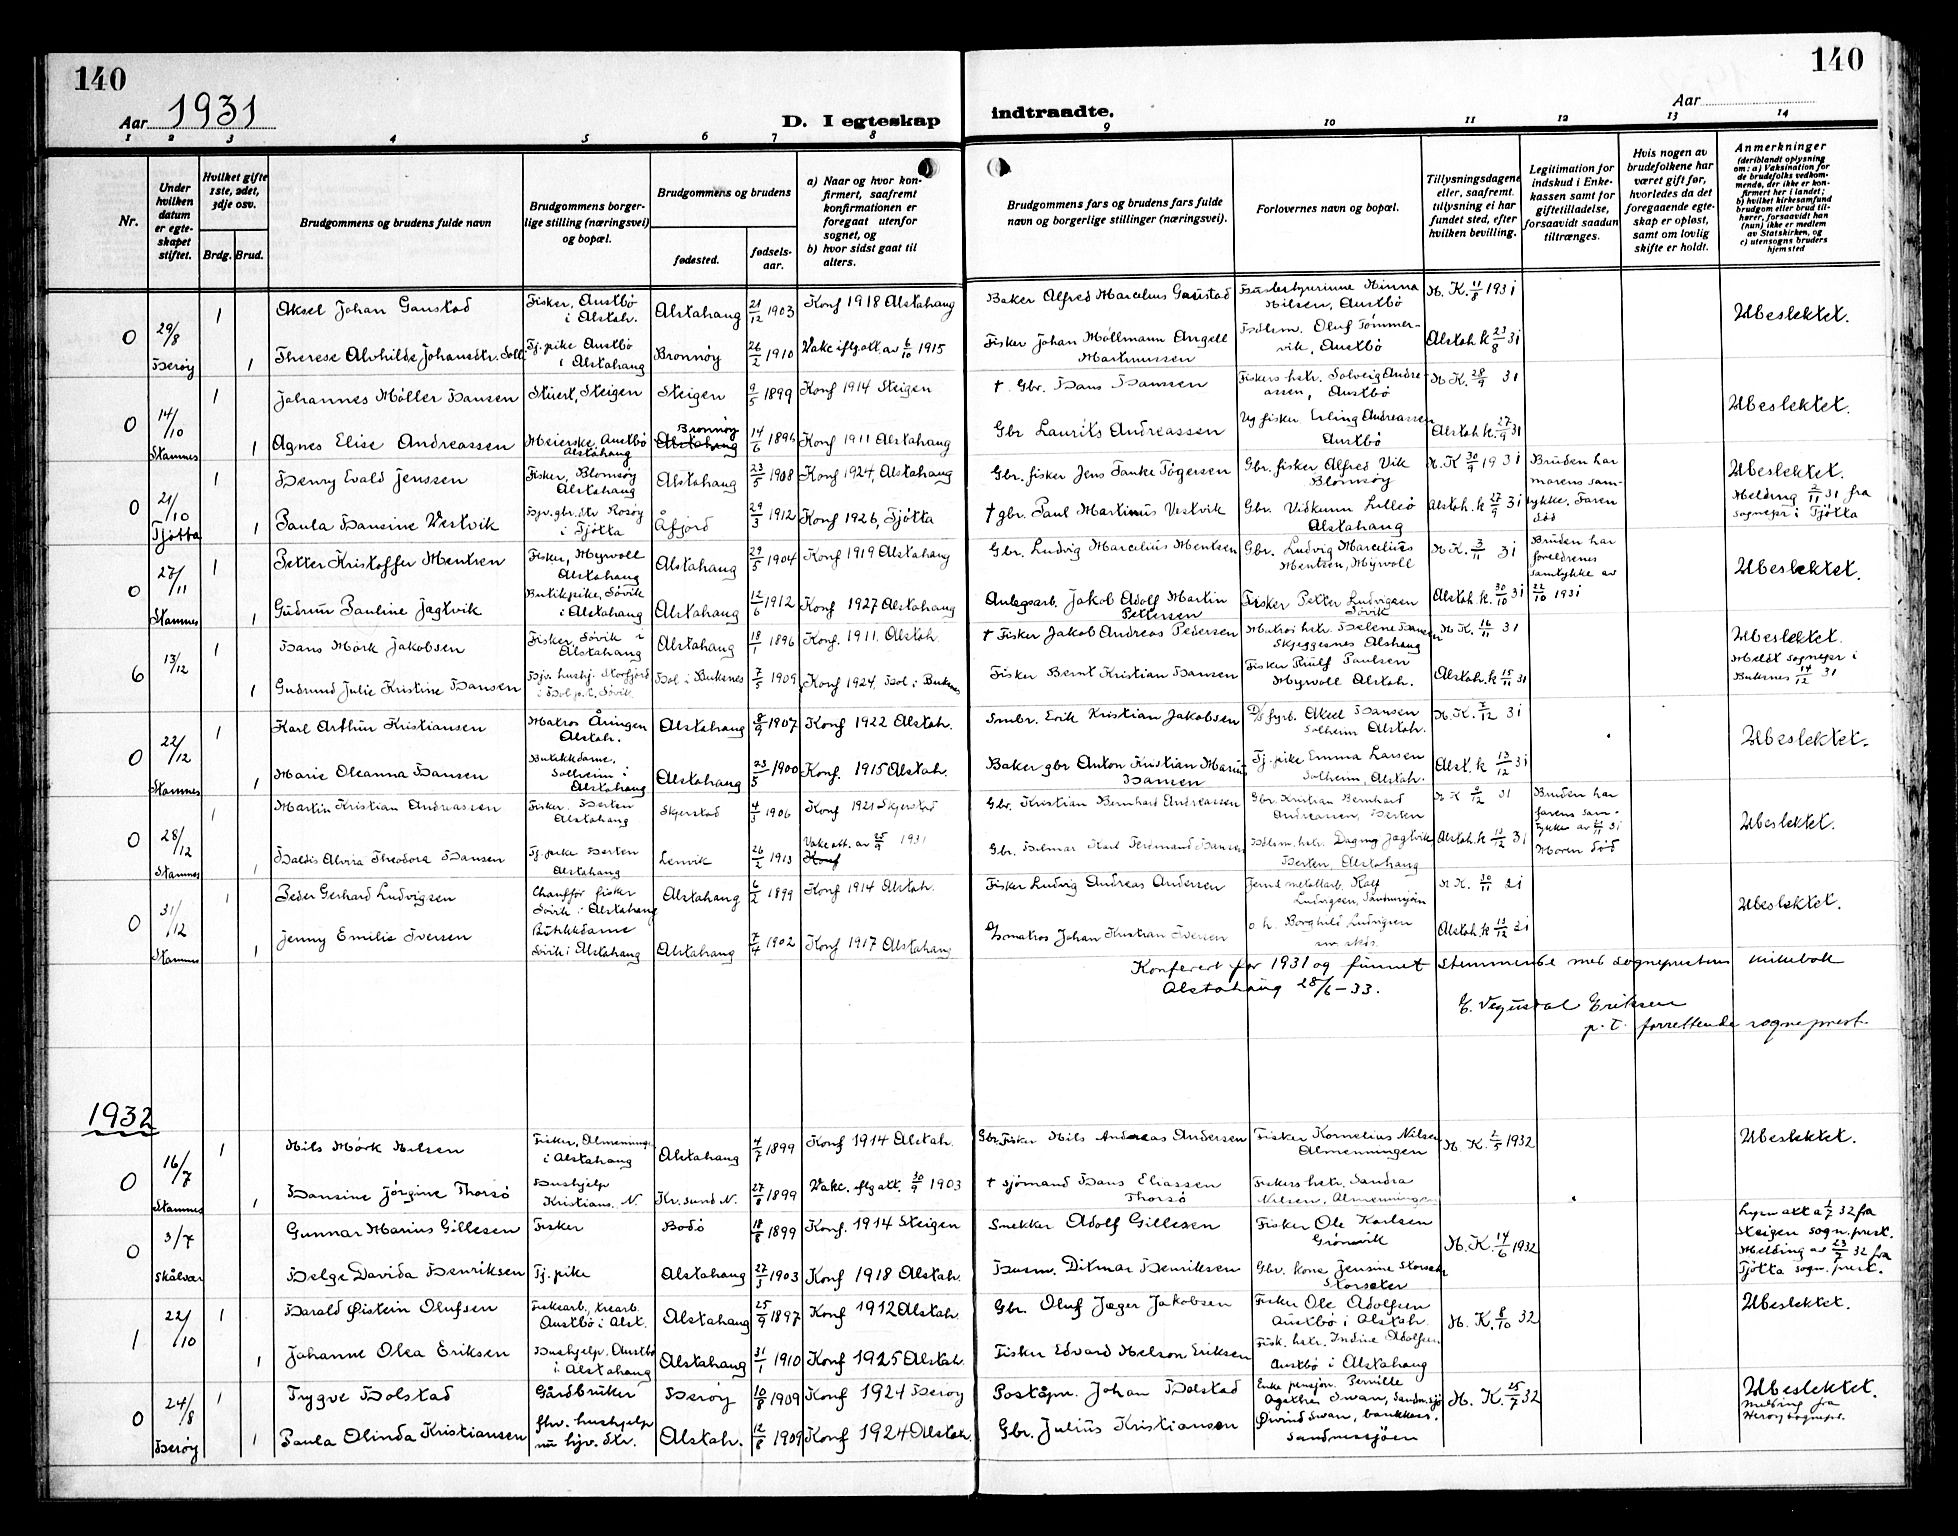 140
140
Aar 1931
D. I egteskap
indtraadte.
Aar
1 2 3 4 5 6 7 8 9 10 11 12 13 14
Nr.
Under hvilken datum er egteskapet stiftet.
Hvilket gifte 1ste, 2det, 3dje osv.
Brdg. Brud.
Brudgommens og brudens fulde navn
Brudgommens borgerlige stilling (næringsvei) og bopæl.
Brudgommens og brudens
fødested.
fødsels-aar.
a) Naar og hvor konfirmert, saafremt konfirmationen er foregaat utenfor sognet, og
b) hvor sidst gaat til alters.
Brudgommens fars og brudens fars fulde navn og borgerlige stillinger (næringsvei).
Forlovernes navn og bopæl.
Tillysningsdagene eller, saafremt tillysning ei har fundet sted, efter hvilken bevilling.
Legitimation for indskud i Enkekassen samt for giftetilladelse, forsaavidt saadan tiltrænges.
Hvis nogen av brudefolkene har været gift før, hvorledes da det foregaaende egteskap er opløst, samt om lovlig skifte er holdt.
Anmerkninger
(deriblandt oplysning om: a) Vaksination for de brudefolks vedkommende, der ikke er konfirmert her i landet; b) hvilket kirkesamfund brudgom eller brud tilhører, forsaavidt han (hun) ikke er medlem av Statskirken, og c) utensogns bruders hjemsted
0 29/8 Herøy
1 Aksel Johan Gaustad Fisker, Austbø i Alstah. Alstahaug 21/12 1903 Konf 1918 Alstahaug Baker Alfred Marcelius Gaustad Husbestyrerinne Minna Nilsen, Austbø N. K. 11/8 1931 Ubeslektet.
1 Therese Alvhilde Johansdtr. Tj. pike Austbø i Alstahaug Brønnøy 26/2 1910 Vakc iflg att. av 6/10 1915 Fisker Johan Møllmann Angell Martinussen Oluf Tømmervik, Austbø Alstah k 23/8 31
0 14/10 Stamnes
1 Johannes Møller Hansen Stuert, Steigen Steigen 9/5 1899 Konf 1914 Steigen † Gbr. Hans Hanssen Fiskers hstr. Solveig Andreassen, Austbø N. K. 28/9 31 Ubeslektet.
1 Agnes Elise Andreassen Meierske, Austbø Alstahaug Brønnøy Alstahaug 14/6 1896 Konf 1911 Alstahaug Gbr Laurits Andreassen Ug fisker Erling Andreassen Austbø Alstah k. 27/9 31
0 21/10 Tjøtta
1 Henry Evald Jenssen Fisker, Blomsøy Alstahaug Alstahaug 23/5 1908 Konf 1924, Alstahaug Gbr. fisker Jens Tanke Togersen Gbr. fisker Alfred Vik Blomsøy N. K 30/9 1931 Bruden har morens samtykke. Faren død Ubeslektet. Melding 2/11 31 fra sognepr i Tjøtta
1 Paula Hansine Vestvik Hjv. gbr. dtr Rosøy i Tjøtta Åfjord 29/3 1912 Konf 1926, Tjøtta † gbr. Paul Martinus Vestvik Gbr. Vidkunn Lilleø Alstahaug Alstah. k 27/9 31
0 27/11 Stamnes
1 Petter Kristoffer Mentsen Fisker, Myrvoll Alstahaug Alstahaug 29/5 1904 Konf 1919 Alstahaug Gbr. Ludvig Marcelius Mentsen Gbr. Ludvig Marcelius Mentsen, Myrvoll N K. 3/11 31 Bruden har foreldrenes samtykke av 22/10 1931 Ubeslektet.
1 Gudrun Pauline Jagtvik Butikpike, Søvik i Alstahaug Alstahaug 12/6 1912 Konf 1927 Alstahaug Anlegsarb. Jakob Adolf Martin Pettersen Fisker Petter Ludvigsen Søvik Alstah. k. 30/10 31
6 13/12
1 Hans Mørk Jakobsen Fisker Søvik i Alstahaug Alstahaug 18/1 1896 Konf. 1911. Alstah. † Fisker Jakob Andreas Pedersen Matros hstr. Helene Hansen Skjeggesnes Alstahaug N K. 16/11 31 Ubeslektet. Meldt sognepr i Buksnes 14/12 31
1 Gudrund Julie Kristine Hansen Hjv. hushj. Storfjord i Hol p.t. Søvik Hol i Buksnes 7/5 1909 Konf 1924, Hol i Buksnes Fisker Bernt Kristian Hansen Fisker Paulsen Myrvoll Alstah. Alstah. k 15/11 31
0 22/12 Stamnes
1 Karl Arthur Kristiansen Matros Åringen Alstah. Alstahaug 8/9 1907 Konf 1922 Alstah. Smbr. Erik Kristian Jakobsen D/s fyrb. Aksel Hansen Solheim Alstah. N. K. 7/12 31 Ubeslektet.
1 Marie Oleanna Hansen Butikkdame, Solheim i Alstahaug Alstahaug 23/5 1900 Konf. 1915 Alstah. Baker gbr Anton Kristian Marius Hansen Tj. pike Emma Larsen Solheim, Alstah. Alst. k 13/12 31
0 28/12 Stamnes
1 Martin Kristian Andreassen Fisker. Herten Alstahaug Skjerstad 4/3 1906 Konf 1921 Skjerstad Gbr. Kristian Bernhard Andreassen Gbr. Kristian Bernhard Andreassen, Herten N K 9/12 31 Bruden har farens samtykke av 21/11 31 Moren død Ubeslektet.
1 Haldis Alvira Theodora Hansen Tj. pike Herten Alstahaug Lenvik 26/2 1913 Vakc att. av 25/9 1931 Konf Gbr. Hilmar Karl Ferdinand Hansen Dagny Jagtvik Herten, Alstahaug Alstah. k 13/12 31
0 31/12 Stamnes
1 Peder Gerhard Ludvigsen Chauffør fisker Søvik i Alstahaug Alstahaug 6/2 1899 Konf 1914 Alstah. Fisker Ludvig Andreas Andersen Jernd metallarb. Rolf Ludvigsen, Sandnessjøen N K. 30/11 31 Ubeslektet.
1 Jenny Emilie Iversen Butikkdame Søvik i Alstahaug Alstahaug 7/4 1902 Konf 1917 Alstahaug Johan Kristian Iversen Borghild Ludvigsen Alstah. k 13/12 31
Konferert for 1931 og funnet stemmende med sogneprestens kirkebok
Alstahaug 28/6-33.
E. Vegusdal Eriksen
p. t. forrettende sogneprest.
1932
0 16/7 Stamnes
1 Nils Mørk Nilsen Fisker, Almenningen i Alstahaug Alstahaug 4/7 1899 Konf 1914 Alstah. Gbr. Fisker Nils Andreas Andersen Fisker Kornelius Nilsen Almenningen N. K. 2/5 1932 Ubeslektet.
1 Hansine Jørgine Thorsø Hushjelp Kristians. N. Kr. sund N. 27/8 1899 Vakc. iflg att. 30/9 1903 † sjømand Hans Eliassen Thorsø Fiskers hstr. Sandra Nilsen, Almenningen
0 3/7 Skålvær
Gunnar Marius Gillesen Fisker Bodø 18/8 1899 Konf. 1914 Steigen Snekker Adolf Gillesen Fisker Ole Karlsen Grønsvik N. K. 14/6 1932 Lysn att a 1/7 32 fra Steigen sogn. prest. Melding av 23/7 32 fra Tjøtta sogn. prest.
Helge Davida Henriksen Tj. pike Alstahaug 27/3 1903 Konf 1918 Alstah. Husm. Ditmar Henriksen Gbr. kone Jensine Storseter Storseter
1 22/10
1 Harald Øistein Olufsen Fiskearb., trearb. Austbø i Alst. Alstahaug 25/9 1897 Konf 1912 Alstah. Gbr. Oluf Jæger Jakobsen Fisker Ole Adolfsen Austbø i Alstah. N. K. 8/10 32 Ubeslektet.
1 Johanne Olea Eriksen Hushjelp. Austbø i Alstahaug Alstahaug 31/1 1910 Konf 1925 Alstah. Fisker Edvard Nelson Eriksen Fisk. hstr. Indine Adolfsen Austbø i Alstahaug
0 24/8 Herøy
1 Trygve Holstad Gårdbruker Herøy 10/8 1909 Konf 1924 Herøy Poståpn. Johan Holstad Enke pensjon. Pernille Agathe Swan, Sandnessj N. K. 25/7 32 Ubeslektet. Melding fra Herøy sognepr.
1 Paula Olinda Kristiansen fhv. hushjelp nu hjv. dtr. Alstah. 12/8 1909 Konf 1924 Alstah Gbr. Julius Kristiansen Øivind Swan, bankkass. Sandnessjøen